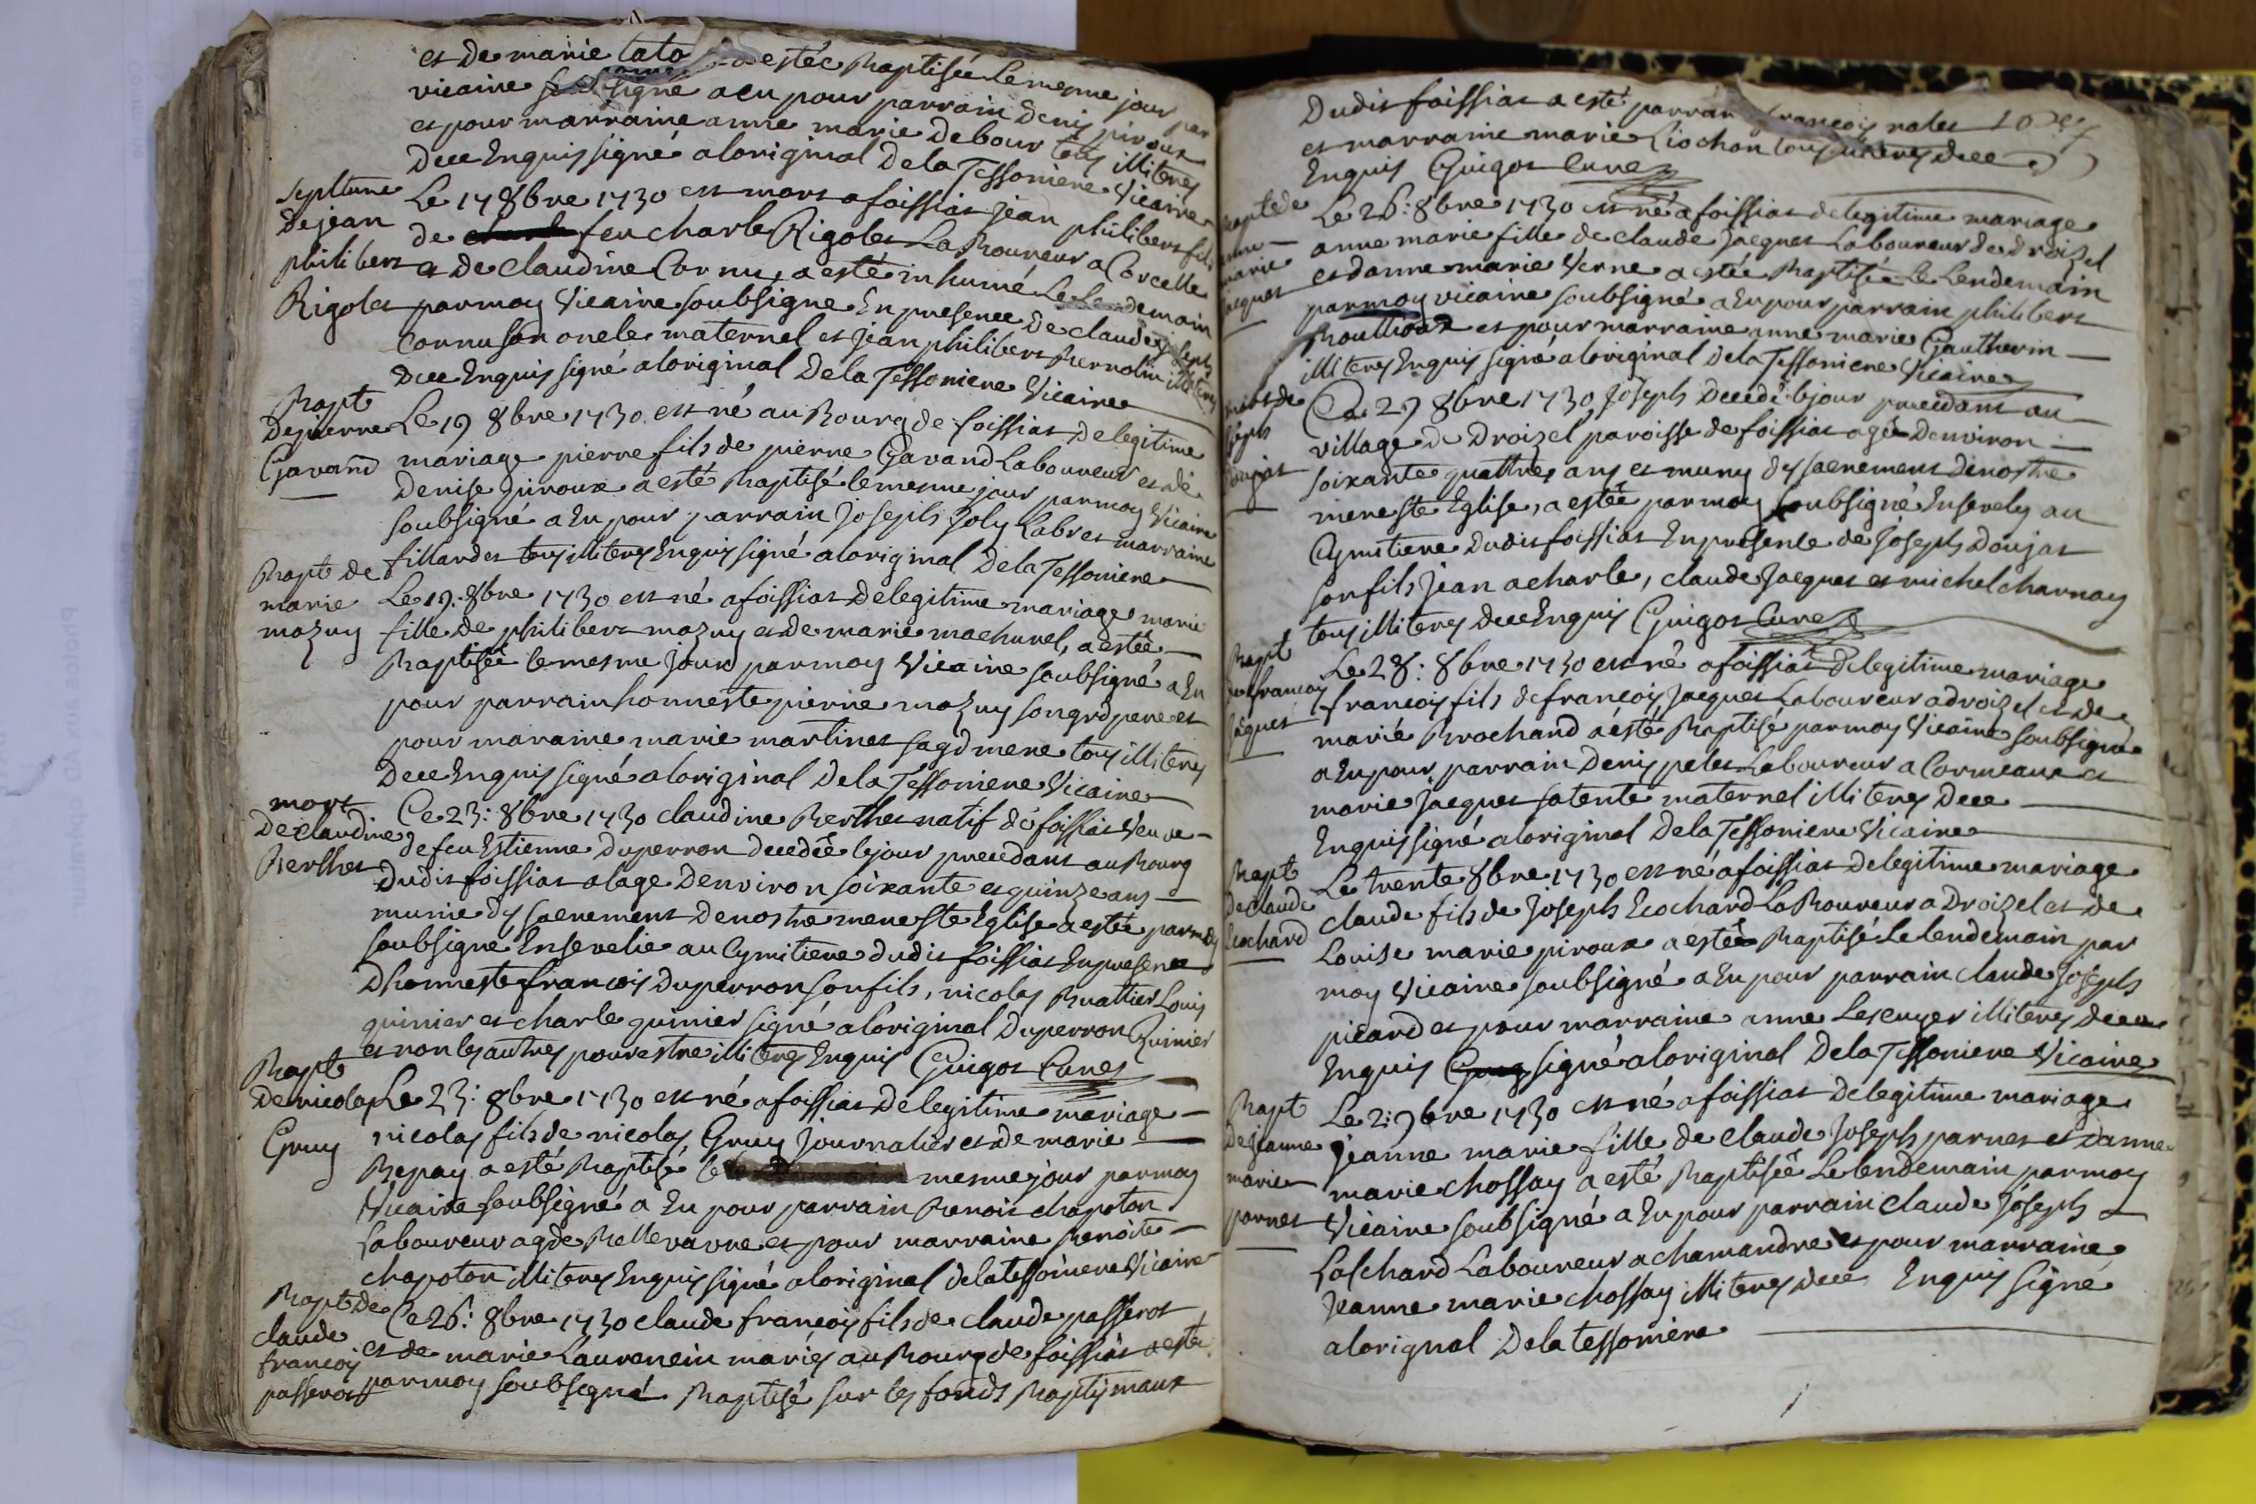 et de marie tato a estée Baptisée le mesme jour par
vicaire soubsigné a eu pour parrain denis piroux
et pour marraine anne marie debour tous illiteres
dece Enquis signé aloriginal Dela Tessoniere Vicaire
sepulture
de jean
philibert
Rigolet
Le 17 8bre 1730 est mort a foissiat jean philibert fils
de feu charle Rigolet Laboureur a Corcelle
et de claudine Cornu, a esté inhumé Le Lendemain
par moy Vicaire soubsigne En presence de claude
Cornu son oncle maternel et jean philibert Bernolin illiteres
dece Enquis signé aloriginal Dela Tessoniere Vicaire
Bapt
de pierre
Gavand
Le 19 8bre 1730 est né au Bourg de foissiat de legitime
mariage pierre fils de pierre Gavand Laboureur et de
denise piroux a esté Baptisé le mesme jour par moy Vicaire
soubsigné a Eu pour parrain Joseph Joly Labr et marraine
fillardet tous illiteres Enquis signé aloriginal Dela Tessoniere
Bapt de
marie
mazuy
Le 19: 8bre 1730 est né a foissiat de legitime mariage marie
fille de philibert mazuy et de marie machurel, a estée
Baptisée le mesme jour par moy Vicaire soubsigné a Eu
pour parrain honneste pierre mazuy son grd pere et
pour maraine marie martinet sa gd mere tous illiteres
Dece Enquis signé aloriginal Dela Tessoniere Vicaire
mort
De claudine
Berthet
Ce 23: 8bre 1730 claudine Berthet natif de foissiat Veuve
de feu Estienne Duperron decedée le jour precedant au Bourg
dudit foissiat a lage denviron soixante et quinze ans
munie des sacrement de nostre mere Ste Eglise a estée par moy
soubsigne Ensevelie au Cymitiere dudit foissiat En presence
Dhonneste francois Duperron son fils, nicolas Buattier Louis
quinier et charle quinier signé a Loriginal Duperron Quinier
et non les autres pour estre illiteres Enquis Guigot Curé
Bapt
de nicolas
Gruy
Le 23: 8bre 1730 est né a foissiat de legitime mariage
nicolas fils de nicolas Gruy journalier et de marie
Repay a esté Baptisé le mesme jour par moy
Vicaire soubsigné a Eu pour parrain Benoit chapoton
Laboureur a gde Bellevavre et pour marraine Benoite
chapoton illiteres Enquis signé aloriginal dela tessoniere Vicaire
Bapt de
claude
francois
passerot
Ce 26: 8bre 1730 claude francois fils de claude passerot
et de marie Laurencin mariés au Bourg de foissiat a esté
par moy soubsigné Baptisé sur les fonds Baptismaux
Dudit foissiat a esté parrain francois rolet
et marraine marie Liochon tous illiteres dece
Enquis Guigot Curé
Bapt de
anne
marie
jacquet
Le 26: 8bre 1730 est né a foissiat de legitime mariage
anne marie fille de claude Jacquet Laboureur de droizel
et danne marie Verne a estée Baptisée Le Lendemain
par moy vicaire soubsigné a Eu pour parrain philibert
Boullioux et pour marraine anne marie Gautherin
illiteres Enquis signé aloriginal Dela Tessoniere Vicaire
mort de
joseph
doujat
Ce 27 8bre 1730 Joseph Decedé le jour precedant au
village de Droizel paroisse de foissiat agé denviron
soixante quattre ans et muny des sacrement de nostre
mere Ste Eglise, a estée par moy soubsigné Ensevely au
Cymitiere dudit foissiat En presence de Joseph Doujat
son fils jean acharle, claude Jacquet et michel charnay
tous illiteres dece Enquis Guigot Curé
Bapt
de francois
jacquet
Le 28: 8bre 1730 est né a foissiat de legitime mariage
francois fils de francois Jacquet Laboureur a droizel et de
marie Brochand a esté Baptisé par moy Vicaire soubsigné
a Eu pour parrain Denis pelet Laboureur a Cormeaux et
marie Jacquet sa tente maternel illiteres Dece
Enquis signé aloriginal Dela Tessoniere Vicaire
Bapt
de claude
Ecochard
Le trente 8bre 1730 est né a foissiat de legitime mariage
claude fils de Joseph Ecochard Laboureur a Droizel et de
Louise marie piroux a estée Baptisé Le lendemain par
moy Vicaire soubsigné a Eu pour parrain claude Joseph
picard et pour marraine anne Lescuyer illiteres dece
Enquis signé aloriginal Dela Tessoniere Vicaire
Bapt
de jeanne
marie
parnet
Le 2: 9bre 1730 est né a foissiat de legitime mariage
jeanne marie fille de claude Joseph parnet et danne
marie chossay a esté Baptisée Le lendemain par moy
Vicaire soubsigné a Eu pour parrain claude Joseph
Laschard Laboureur a chamandre et pour marraine
Jeanne marie chossay illiteres dece Enquis signé
alorignal Dela tessoniere